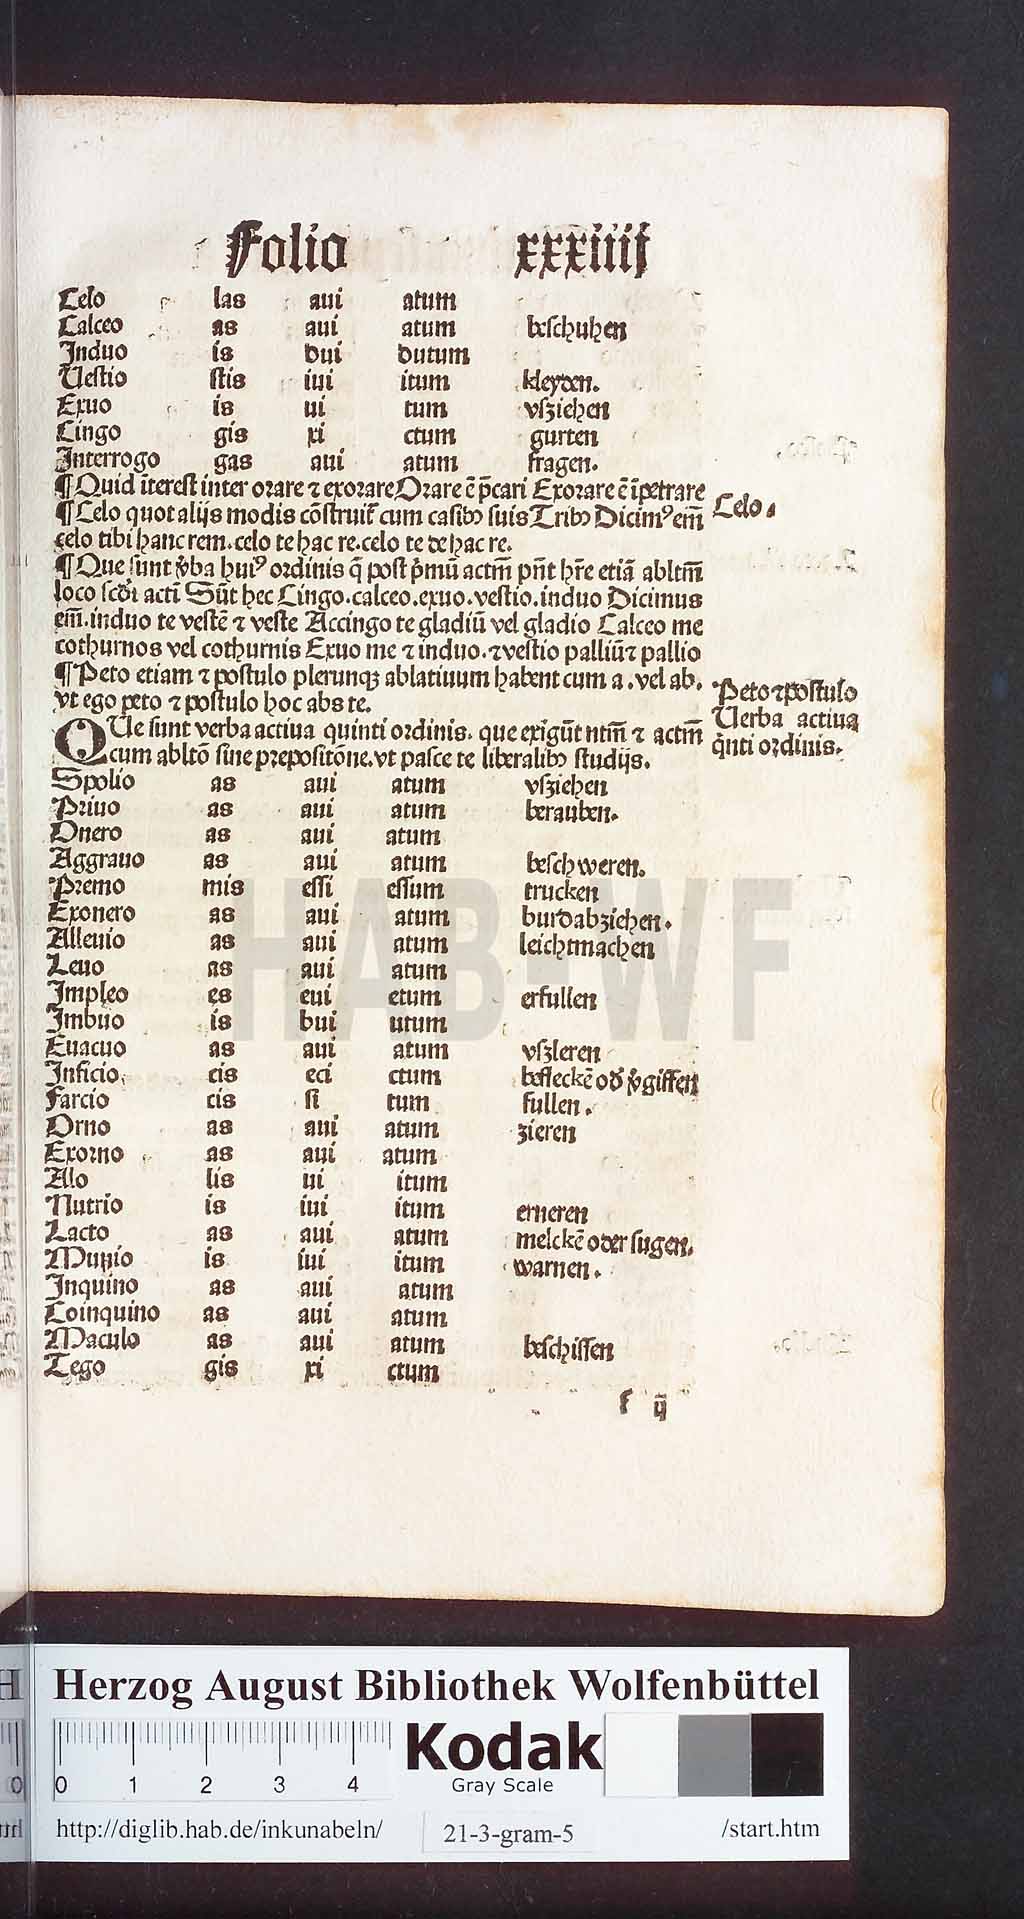 Folio xxxiiij
Celo las aui atum
Calceo as aui atum beſchuhen
Induo is dui dutum
Ueſtio ſtis iui itum kleyden.
Exuo is ui tum vſziehen
Cingo gis xi ctum gurten
Interrogo gas aui atum fragen.
¶ Quid īterest inter orare ⁊ exorare Orare ē p̄cari Exorare ē īpetrare
¶ Celo quot alijs modis cōſtruit᷑ cum caſibꝰ ſuis Tribꝰ Dicimꝰ em̄
Celo.
celo tibi hanc rem. celo te hac re. celo te de hac re.
¶ Que ſunt v̓ba huiꝰ ordinis q̄ poſt p̓mū actm̄ pn̄t hr̄e etiā abltm̄
loco ſcd̓i acti̅ Sūt hec Cingo. calceo. exuo. veſtio. induo Dicimus
em̄. induo te veſtē ⁊ veſte Accingo te gladiū vel gladio Calceo me
cothurnos vel cothurnis Exuo me ⁊ induo. ⁊ veſtio palliū ⁊ pallio
¶ Peto etiam ⁊ poſtulo plerunqꝫ ablatiuum habent cum a. vel ab.
Peto ⁊ poſtulo
vt ego peto ⁊ poſtulo hoc abs te.
QUe ſunt verba actiua quinti ordinis. que exigūt ntm̄ ⁊ actm̄
Uerba actiua
cum abltō ſine prepoſitōne. vt paſce te liberalibꝰ ſtudijs.
q̓nti ordinis.
Spolio as aui atum vſziehen
Priuo as aui atum berauben.
Onero as aui atum
Aggrauo as aui atum beſchweren.
Premo mis eſſi eſſum trucken
Exonero as aui atum burdabziehen.
Alleuio as aui atum leichtmachen
Leuo as aui atum
Impleo es eui etum erfullen
Imbuo is bui utum
Euacuo as aui atum vſzleren
Inficio cis eci ctum befleckē od̓ v̓giffen
Farcio cis ſi tum fullen.
Orno as aui atum zieren
Exorno as aui atum
Alo lis ui itum
Nutrio is iui itum erneren
Lacto as aui atum melckē oder ſugen.
Munio is iui itum warnen.
Inquino as aui atum
Coinquino as aui atum
Maculo as aui atum beſchiſſen
Tego gis xi ctum
f ij
HAB-WF
Herzog August Bibliothek Wolfenbüttel
0 1 2 3 4
Kodak
Gray Scale
http://diglib.hab.de/inkunabeln/ 21-3-gram-5 /start.htm